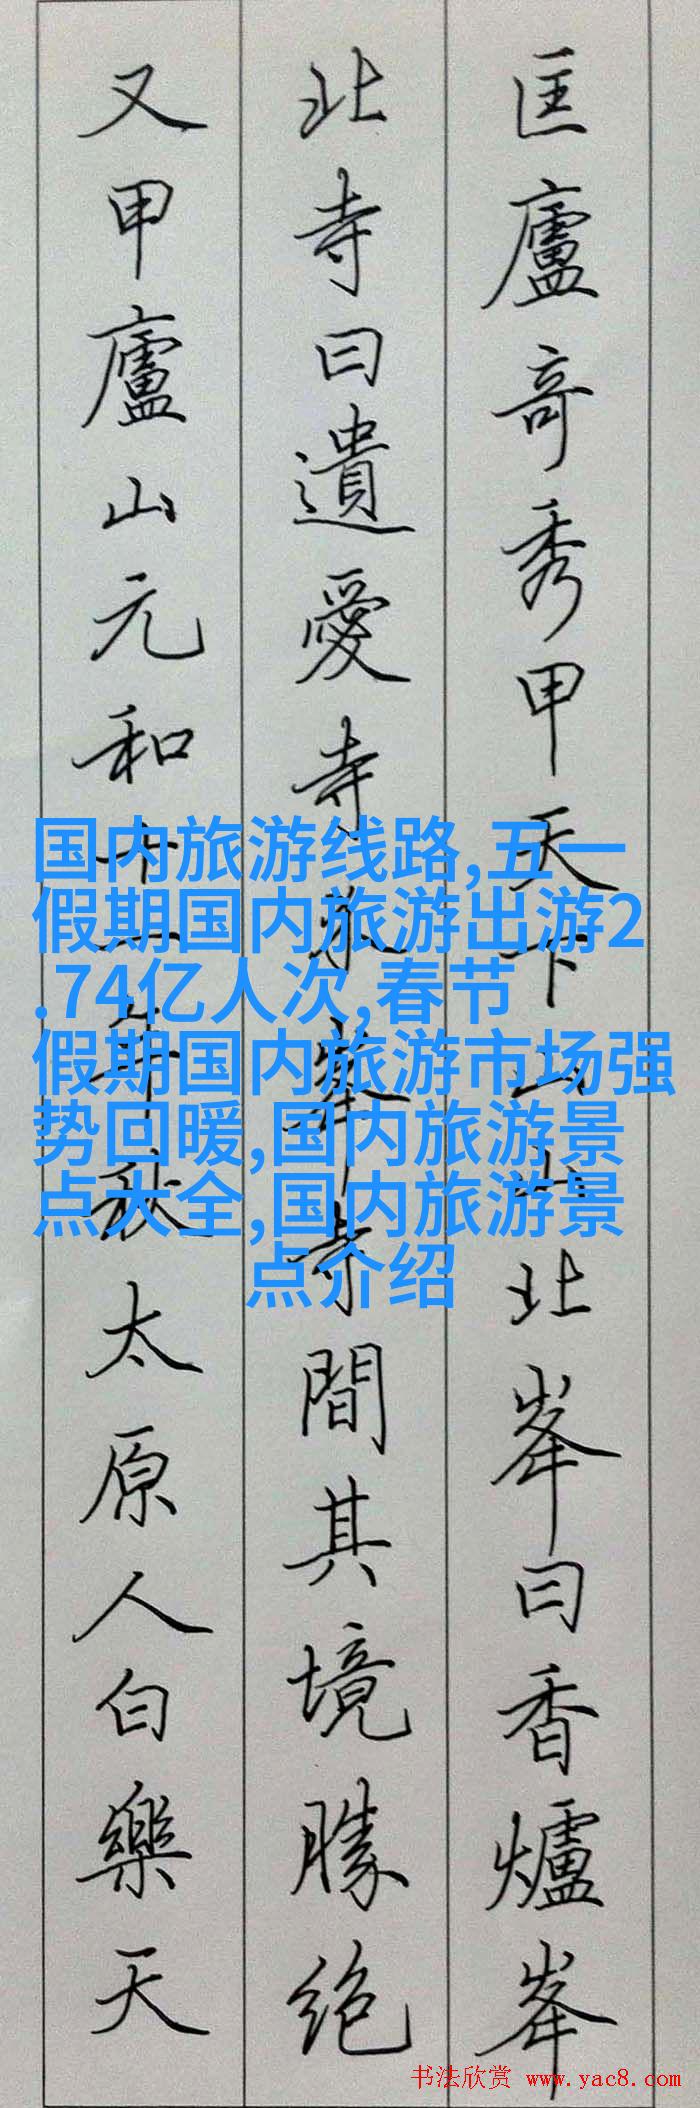 匡廬竒秀甲天下山山北峯曰香爐峯
北寺曰遺愛寺介峯寺間其境勝绝
又甲廬山元和十一年秋太原人白樂天
国内旅游线路,五一
假期国内旅游出游2
.74亿人次,春节
假期国内旅游市场强
势回暖,国内旅游景
点大全,国内旅游景
点介绍
书法欣赏 www.yac8.com